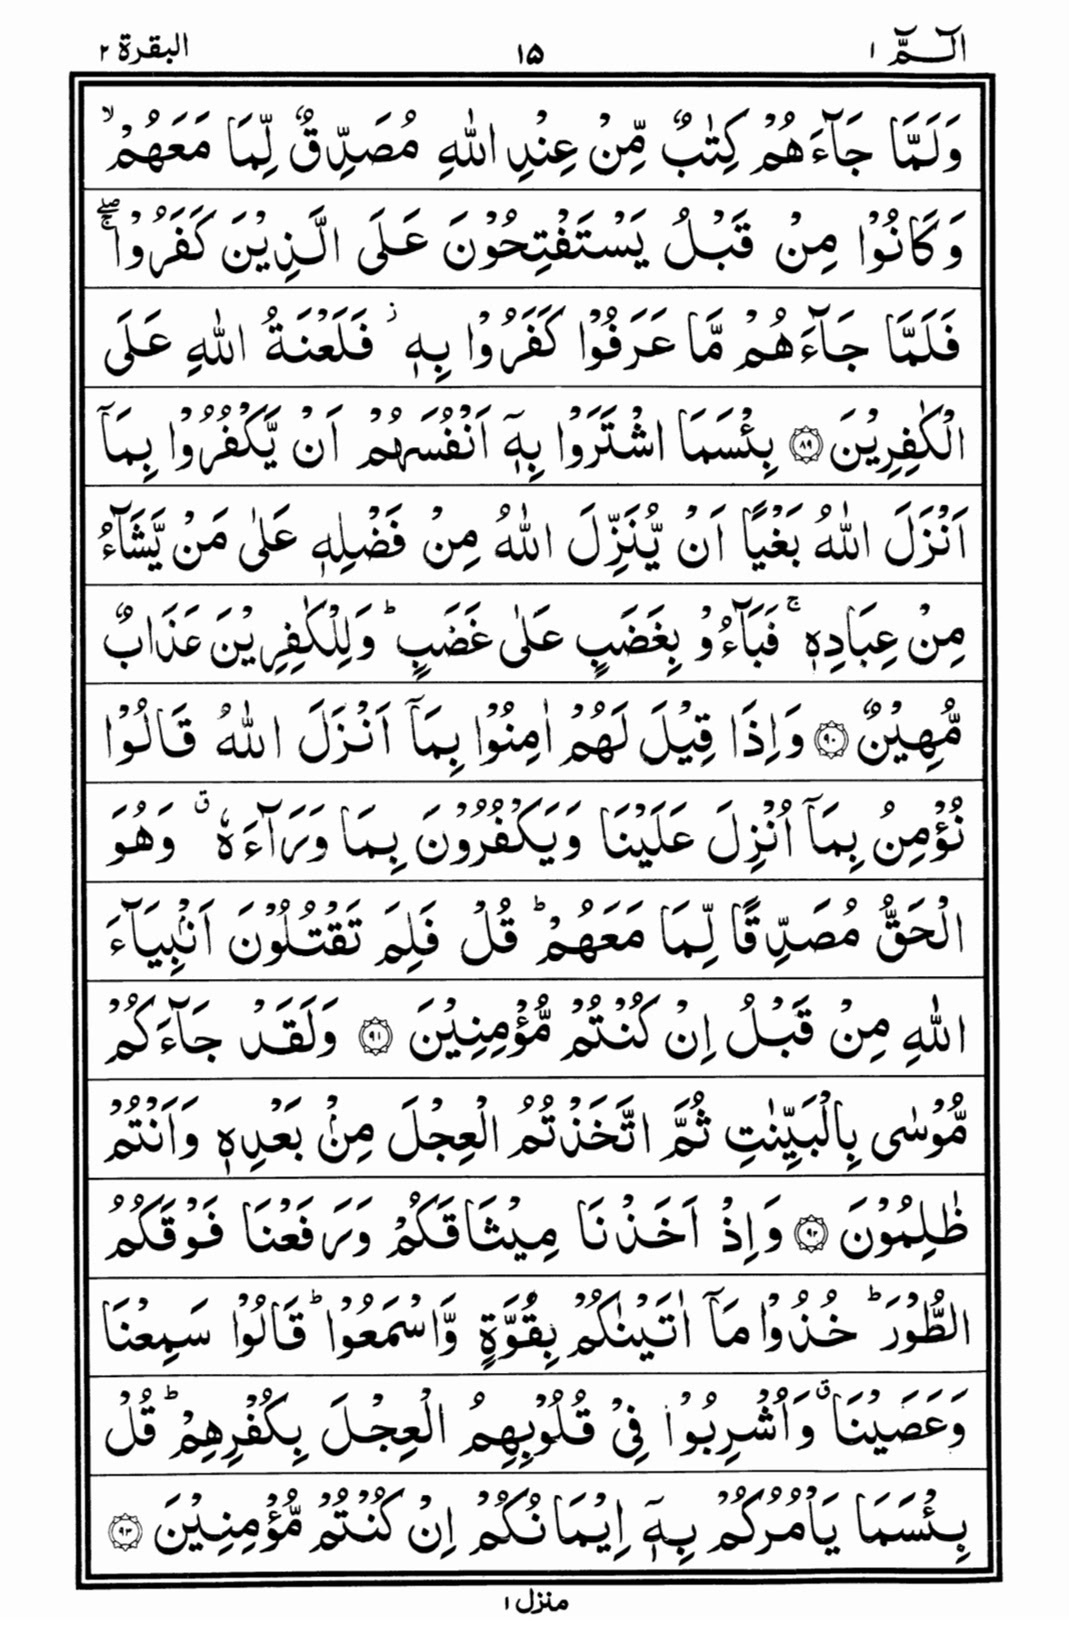 الٓـمّٓ ۱
۱۵
البقرة ۲
وَلَمَّا جَآءَهُمْ كِتٰبٌ مِّنْ عِنْدِ اللّٰهِ مُصَدِّقٌ لِّمَا مَعَهُمْ ۙ
وَكَانُوْا مِنْ قَبْلُ يَسْتَفْتِحُوْنَ عَلَى الَّذِيْنَ كَفَرُوْا ۖۚ
فَلَمَّا جَآءَهُمْ مَّا عَرَفُوْا كَفَرُوْا بِهٖ ؗ فَلَعْنَةُ اللّٰهِ عَلَى
الْكٰفِرِيْنَ ﴿۸۹﴾ بِئْسَمَا اشْتَرَوْا بِهٖٓ اَنْفُسَهُمْ اَنْ يَّكْفُرُوْا بِمَآ
اَنْزَلَ اللّٰهُ بَغْيًا اَنْ يُّنَزِّلَ اللّٰهُ مِنْ فَضْلِهٖ عَلٰى مَنْ يَّشَآءُ
مِنْ عِبَادِهٖ ۚ فَبَآءُوْ بِغَضَبٍ عَلٰى غَضَبٍ ؕ وَلِلْكٰفِرِيْنَ عَذَابٌ
مُّهِيْنٌ ﴿۹۰﴾ وَاِذَا قِيْلَ لَهُمْ اٰمِنُوْا بِمَآ اَنْزَلَ اللّٰهُ قَالُوْا
نُؤْمِنُ بِمَآ اُنْزِلَ عَلَيْنَا وَيَكْفُرُوْنَ بِمَا وَرَآءَهٗ ۗ وَهُوَ
الْحَقُّ مُصَدِّقًا لِّمَا مَعَهُمْ ؕ قُلْ فَلِمَ تَقْتُلُوْنَ اَنْۢبِيَآءَ
اللّٰهِ مِنْ قَبْلُ اِنْ كُنْتُمْ مُّؤْمِنِيْنَ ﴿۹۱﴾ وَلَقَدْ جَآءَكُمْ
مُّوْسٰى بِالْبَيِّنٰتِ ثُمَّ اتَّخَذْتُمُ الْعِجْلَ مِنْۢ بَعْدِهٖ وَاَنْتُمْ
ظٰلِمُوْنَ ﴿۹۲﴾ وَاِذْ اَخَذْنَا مِيْثَاقَكُمْ وَرَفَعْنَا فَوْقَكُمُ
الطُّوْرَ ؕ خُذُوْا مَآ اٰتَيْنٰكُمْ بِقُوَّةٍ وَّاسْمَعُوْا ؕ قَالُوْا سَمِعْنَا
وَعَصَيْنَا ۗ وَاُشْرِبُوْا فِيْ قُلُوْبِهِمُ الْعِجْلَ بِكُفْرِهِمْ ؕ قُلْ
بِئْسَمَا يَاْمُرُكُمْ بِهٖٓ اِيْمَانُكُمْ اِنْ كُنْتُمْ مُّؤْمِنِيْنَ ﴿۹۳﴾
منزل ۱